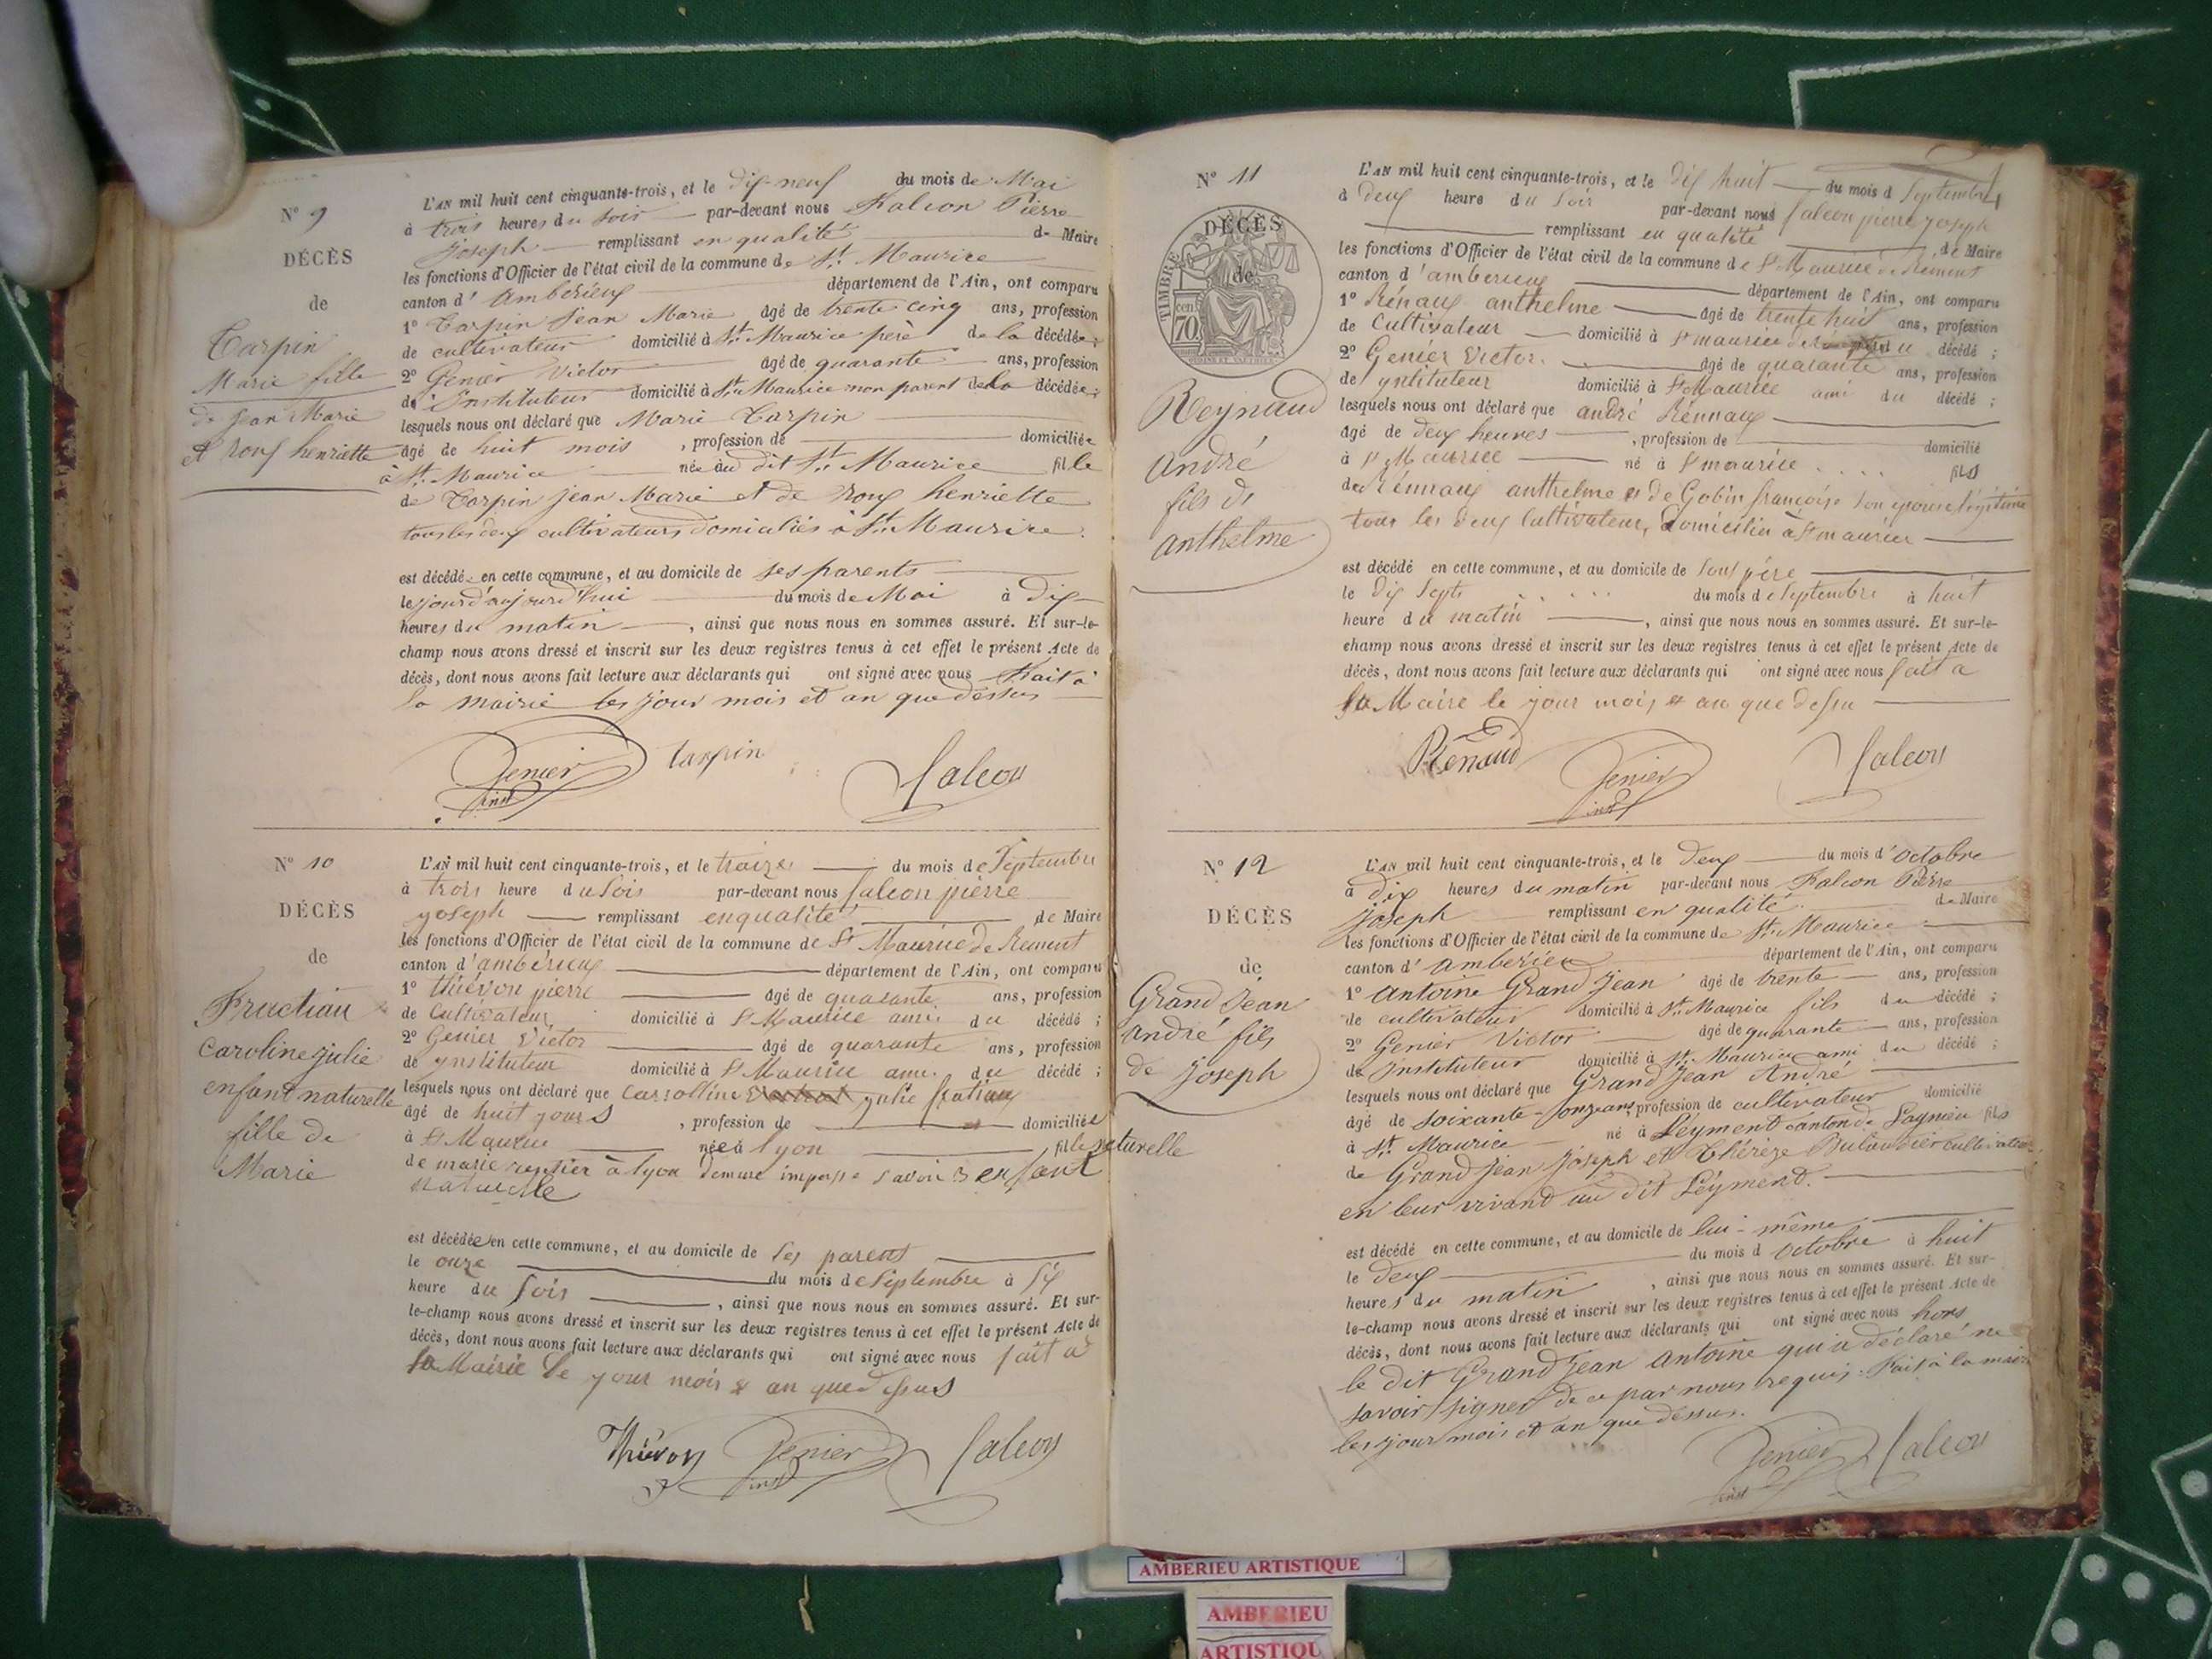 N° 9
DÉCÈS
de
Tarpin
Marie fille
de jean Marie
et roux henriette
L'AN mil huit cent cinquante-trois, et le dix-neuf du mois de Mai
à trois heures du soir par-devant nous Falcon Pierre
Joseph remplissant en qualité de Maire
les fonctions d'Officier de l'état civil de la commune de St. Maurice
canton d' Ambérieux département de l'Ain, ont comparu
1° Tarpin Jean Marie âgé de trente cinq ans, profession
de cultivateur domicilié à St. Maurice père de la décédée;
2° Genier Victor âgé de quarante ans, profession
de Instituteur domicilié à St. Maurice non parent de la décédée;
lesquels nous ont déclaré que Marie Tarpin
âgé de huit mois, profession de domiciliée
à St. Maurice née au dit St. Maurice fille
de Tarpin jean Marie et de roux henriette
tous les deux cultivateurs domiciliés à St. Maurice.
est décédé en cette commune, et au domicile de ses parents
le jourd'aujourd'hui du mois de Mai à dix
heures du matin, ainsi que nous nous en sommes assuré. Et sur-le-
champ nous avons dressé et inscrit sur les deux registres tenus à cet effet le présent Acte de
décès, dont nous avons fait lecture aux déclarants qui ont signé avec nous Fait à
la mairie les jour mois et an que dessus
Genier inst tarpin falcon
N° 10
DÉCÈS
de
Fructiau
Caroline julie
enfant naturelle
fille de
Marie
L'AN mil huit cent cinquante-trois, et le traize du mois de Septembre
à trois heure du soir par-devant nous falcon pierre
yoseph remplissant en qualité de Maire
les fonctions d'Officier de l'état civil de la commune de St Maurice de Rement
canton d'ambérieux département de l'Ain, ont comparu
1° thiévon pierre âgé de quarante ans, profession
de Cultivateur domicilié à St Maurice ami du décédé;
2° Genier Victor âgé de quarante ans, profession
de ynstituteur domicilié à St Maurice ami du décédé;
lesquels nous ont déclaré que Carrolline yulie
âgé de huit yours, profession de domiciliée
à St Maurice née à lyon fille naturelle
de marie à lyon demure savoir enfant
naturelle
est décédée en cette commune, et au domicile de ses parents
le onze du mois de Septembre à six
heure du soir, ainsi que nous nous en sommes assuré. Et sur-
le-champ nous avons dressé et inscrit sur les deux registres tenus à cet effet le présent Acte de
décès, dont nous avons fait lecture aux déclarants qui ont signé avec nous fait à
la Mairie le your mois & an que dessus
Thiévon Genier inst falcon
N° 11
DÉCÈS
de
TIMBRE
70 cen
Reynaud
André
fils de
anthelme
L'AN mil huit cent cinquante-trois, et le dix huit du mois d Septembre
à deux heure du soir par-devant nous falcon pierre joseph
remplissant en qualité de Maire
les fonctions d'Officier de l'état civil de la commune de St Maurice de Rement
canton d'amberieux département de l'Ain, ont comparu
1° Rénaux anthelme âgé de trente huit ans, profession
de Cultivateur domicilié à St maurice décédé;
2° Genier Victor âgé de quarante ans, profession
de ynstituteur domicilié à St Maurice ami du décédé;
lesquels nous ont déclaré que andré Rénnaux
âgé de deux heures, profession de domicilié
à St Maurice né à St maurice fils
de Rénnaux anthelme & de Gobin françoise son epouse légitime
tous les deux Cultivateur, Domicilier à St maurice
est décédé en cette commune, et au domicile de son père
le dix Sept du mois de Septembre à huit
heure du matin, ainsi que nous nous en sommes assuré. Et sur-le-
champ nous avons dressé et inscrit sur les deux registres tenus à cet effet le présent Acte de
décès, dont nous avons fait lecture aux déclarants qui ont signé avec nous fait à
la Maire le jour mois & an que dessu
Rénaud Genier inst falcon
N° 12
DÉCÈS
de
Grand Jean
André fils
de Joseph
L'AN mil huit cent cinquante-trois, et le Deux du mois d'octobre
à dix heures du matin par-devant nous Falcon Pierre
Joseph remplissant en qualité de Maire
les fonctions d'Officier de l'état civil de la commune de St. Maurice
canton d' Ambérieu département de l'Ain, ont comparu
1° Antoine Grand Jean âgé de trente ans, profession
de cultivateur domicilié à St. Maurice fils du décédé;
2° Genier Victor âgé de quarante ans, profession
de Instituteur domicilié à St. Maurice ami du décédé;
lesquels nous ont déclaré que Grand Jean André
âgé de soixante-onze ans, profession de cultivateur domicilié
à St. Maurice né à Leyment canton de Lagnieu fils
de Grand Jean Joseph et Thérèze cultivateurs
en leur vivant au dit Leyment.
est décédé en cette commune, et au domicile de lui-même
le Deux du mois d octobre à huit
heures du matin, ainsi que nous nous en sommes assuré. Et sur-
le-champ nous avons dressé et inscrit sur les deux registres tenus à cet effet le présent Acte de
décès, dont nous avons fait lecture aux déclarants qui ont signé avec nous hors
le dit Grand Jean Antoine qui a déclaré ne
savoir signer de ce par nous requis. Fait à la mairie
les jour mois et an que dessus.
Genier inst falcon
AMBERIEU ARTISTIQUE
AMBERIEU
ARTISTIQU